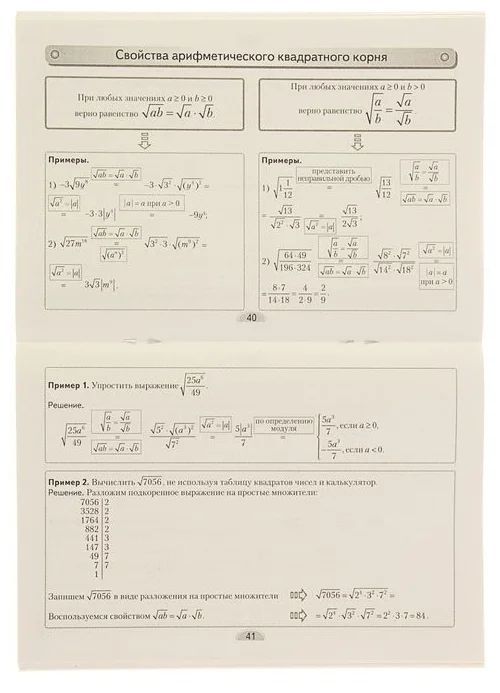 Свойства арифметического квадратного корня
При любых значениях a ≥ 0 и b ≥ 0
верно равенство √ab = √a · √b.
При любых значениях a ≥ 0 и b > 0
верно равенство √(a/b) = √a/√b
Примеры.
1) −3√9y⁸ √ab = √a · √b = −3·√3² · √(y⁴)² =
√a² = |a| = −3·3|y⁴| |a| = a при a > 0 = −9y⁴;
2) √27m¹⁸ √ab = √a · √b = √(aⁿ)² √3² · 3 · √(m⁹)² =
√a² = |a| = 3√3|m⁹|.
Примеры.
1) √1 1/12 представить неправильной дробью = √(13/12) √(a/b) = √a/√b = √ab = √a · √b
= √13/√2² · √3 √a² = |a| = √13/2√3;
2) √(64 · 49/196 · 324) √(a/b) = √a/√b = √ab = √a · √b √8² · √7²/√14² · √18² √a² = |a| = |a| = a при a > 0
= 8·7/14·18 = 4/2·9 = 2/9;
40
Пример 1. Упростить выражение √(25a⁶/49).
Решение.
√(25a⁶/49) √(a/b) = √a/√b = √ab = √a · √b √5² · √(a³)²/√7² √a² = |a| = 5|a³|/7 по определению модуля = { 5a³/7, если a ≥ 0, −5a³/7, если a < 0.
Пример 2. Вычислить √7056, не используя таблицу квадратов чисел и калькулятор.
Решение. Разложим подкоренное выражение на простые множители:
7056 | 2
3528 | 2
1764 | 2
882 | 2
441 | 3
147 | 3
49 | 7
7 | 7
1 |
Запишем √7056 в виде разложения на простые множители ⇨ √7056 = √2⁴ · 3² · 7² =
Воспользуемся свойством √ab = √a · √b. ⇨ = √2⁴ · √3² · √7² = 2² · 3 · 7 = 84.
41